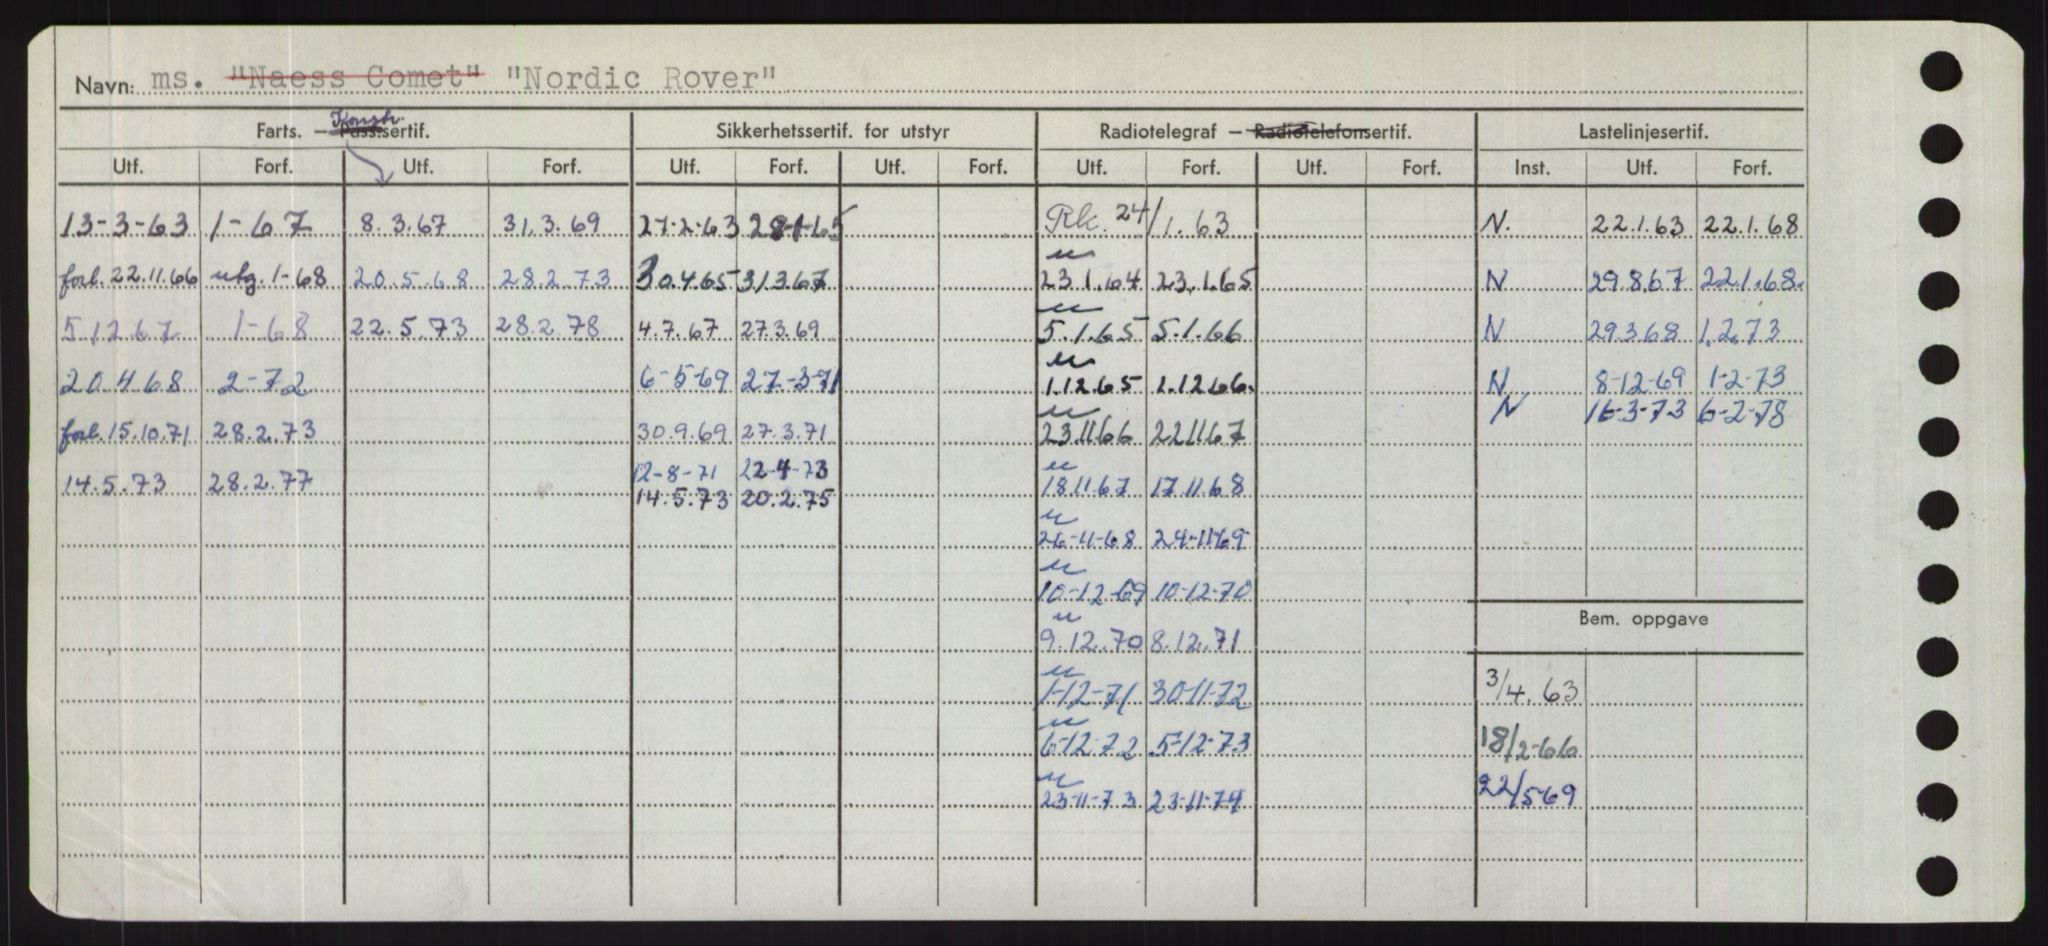 Navn: ms. "Naess Comet" "Nordic Rover"
Farts. – Konstr. Pass.sertif. Sikkerhetssertif. for utstyr Radiotelegraf – Radiotelefonsertif. Lastelinjesertif.
Utf. Forf. Utf. Forf. Utf. Forf. Utf. Forf. Utf. Forf. Utf. Forf. Inst. Utf. Forf.
13-3-63 1-67 8.3.67 31.3.69 27.2.63 28-1-65 Rk. 24/1.63 N. 22.1.63 22.1.68
forl. 22.11.66 utg. 1-68 20.5.68 28.2.73 30.4.65 31.3.67 u 23.1.64 23.1.65 N 29.8.67 22.1.68.
5.12.67 1-68 22.5.73 28.2.78 4.7.67 27.3.69 u 5.1.65 5.1.66 N 29.3.68 1.2.73
20.4.68 2-72 6-5-69 27-3-71 u 1.12.65 1.12.66. N 8-12-69 1-2-73
N 16-3-73 6-2-78
forl. 15.10.71 28.2.73 30.9.69 27.3.71 u 23.11.66 22.11.67
12-8-71 22-4-73
14.5.73 28.2.77 14.5.73 20.2.75 u 18.11.67 17.11.68
u 26-11-68 24-11-69
u 10-12-69 10-12-70
Bem. oppgave
u 9.12.70 8.12.71
u 1-12-71 30-11-72 3/4.63
u 6-12-72 5-12-73 18/2-66
u 23-11-73 23-11-74 22/5-69